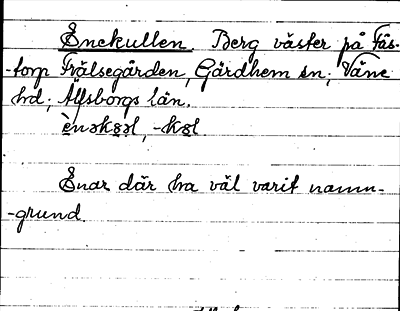 Enekullen. Berg väster på Fäs-
-torp Frälsegården, Gärdhem sn; Väne
hd; Älfsborgs län.
ènəkꞛəl, -kꞛl
Enar där ha väl varit namn-
-grund.